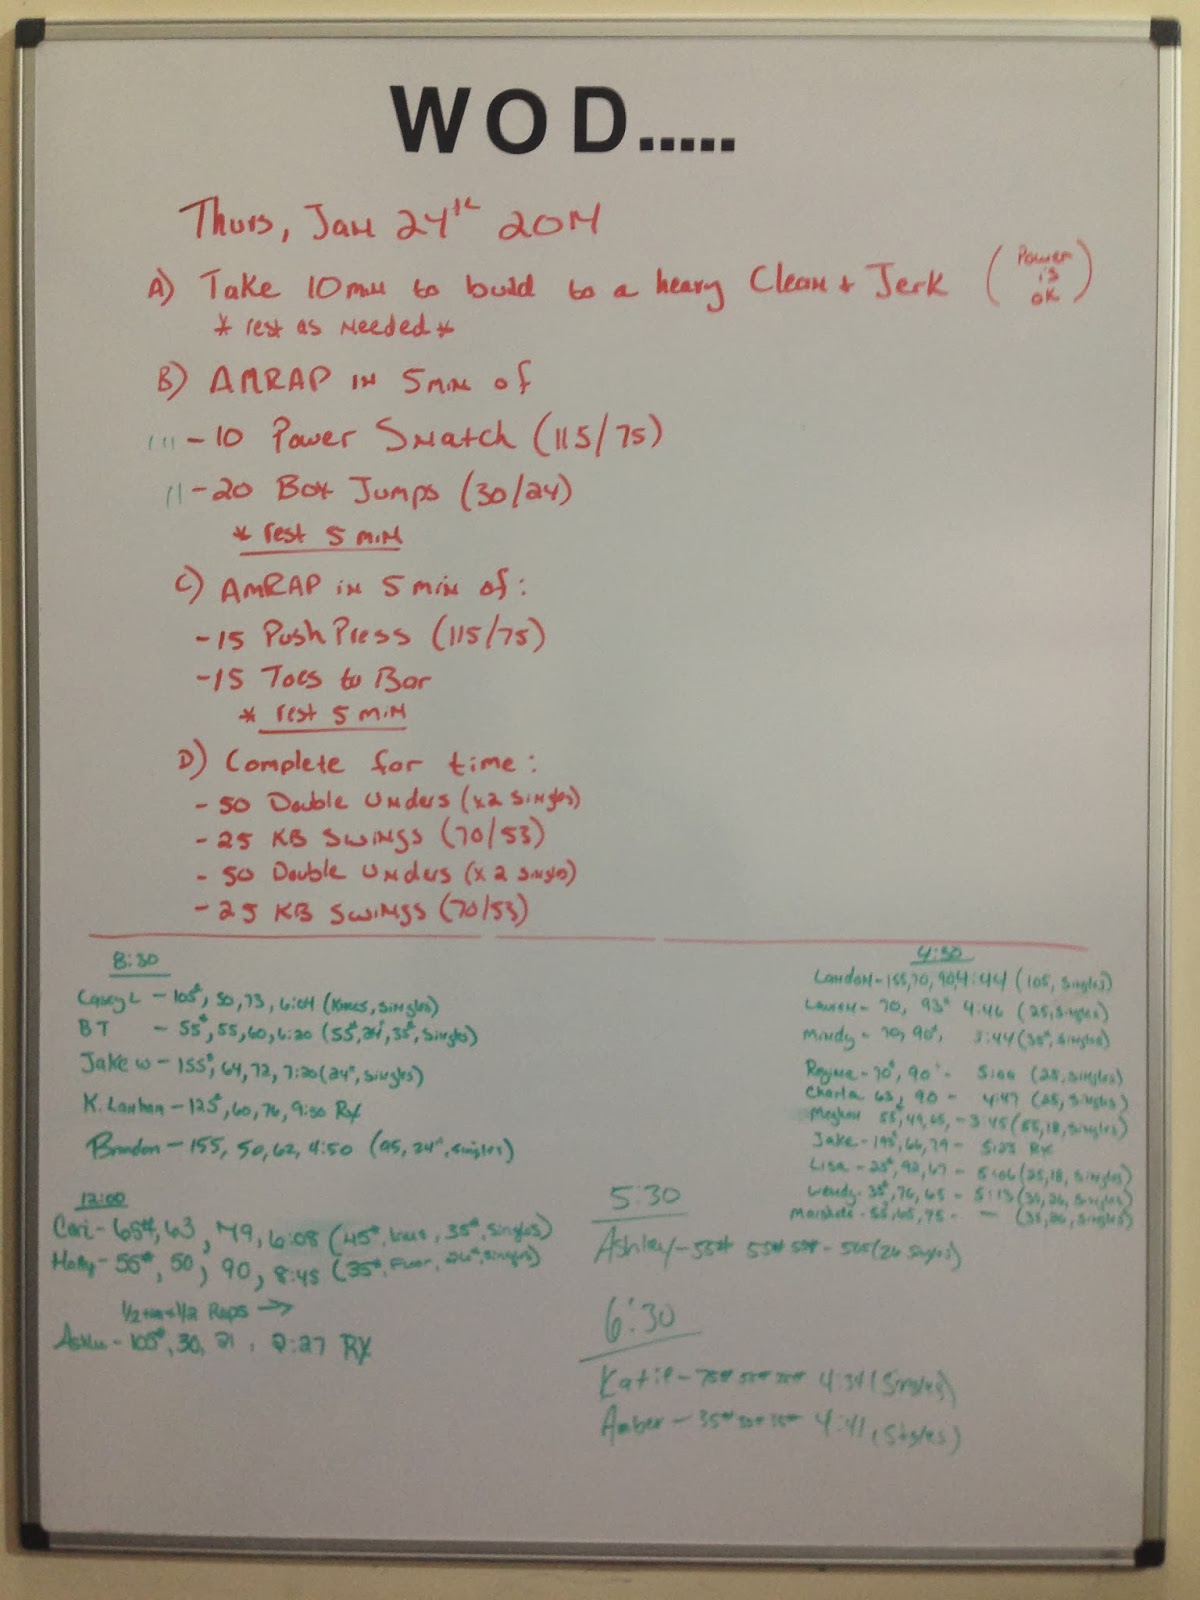 WOD.....
Thurs, Jan 24th 2014
A) Take 10 min to build to a heavy Clean + Jerk (Power is OK)
* rest as needed *
B) AMRAP in 5 min of
-10 Power Snatch (115/75)
-20 Box Jumps (30/24)
* rest 5 min
C) AMRAP in 5 min of:
-15 Push Press (115/75)
-15 Toes to Bar
* rest 5 min
D) Complete for time:
- 50 Double Unders (x2 Singles)
- 25 KB Swings (70/53)
- 50 Double Unders (x 2 Singles)
- 25 KB Swings (70/53)
8:30
Casey L - 105#, 50, 73, 6:04 (Knees, Singles)
BT - 55#, 55, 60, 6:20 (55#, 24", 35#, Singles)
Jake W - 155#, 64, 72, 7:20 (24", Singles)
K. Lanhan - 125#, 60, 76, 9:50 RX
Brandon - 155, 50, 62, 4:50 (95, 24", Singles)
12:00
Cari - 65#, 63, 79, 6:08 (45#, knees, 35#, Singles)
Holly - 55#, 50, 90, 8:45 (35#, Floor, 26#, Singles)
1/2 1/2 Reps →
105#, 30, 21, 2:27 RX
4:30
Landon - 155, 70, 90, 4:44 (105, Singles)
Lauren - 70, 93# 4:46 (25, Singles)
Mindy - 70, 90#, 3:44 (35#, Singles)
70#, 90 - (25, Singles)
Charla 65, 90 - 4:47 (25, Singles)
Meghan 55, 49, 65, - 3:45 (55, 18, Singles)
Jake - 195#, 66, 79 - 5:23 RX
Lisa - 25#, 92, 67 - 5:06 (25, 18, Singles)
Wendy - 35#, 76, 65 - 5:13 (35, 26, Singles)
55, 65, 75 - - (35, 26, Singles)
5:30
Ashley - 55# 55# (26 Singles)
6:30
Katie - 75# 4:34 (Singles)
Amber - 35# 4:41 (Singles)